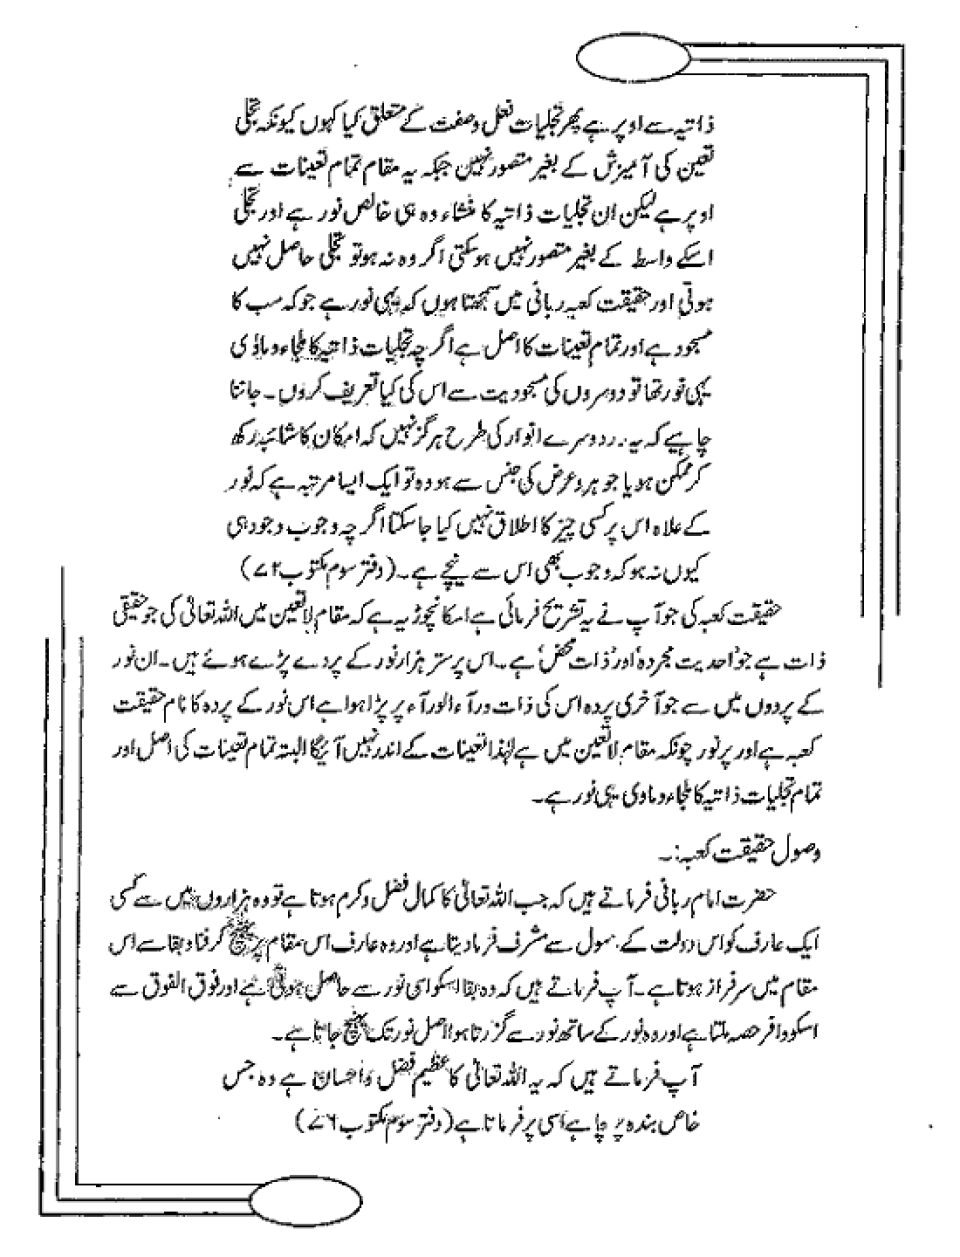 ذاتیہ سے اوپر ہے پھر تجلیات فعل وصفت کے متعلق کیا کہوں کیونکہ تجلی
تعین کی آمیزش کے بغیر متصور نہیں جبکہ یہ مقام تمام تعینات سے
اوپر ہے لیکن ان تجلیات ذاتیہ کا منشاء وہ ہی خالص نور ہے اور تجلی
اسکے واسطہ کے بغیر متصور نہیں ہوسکتی اگر وہ نہ ہو تو تجلی حاصل نہیں
ہوتی اور حقیقت کعبہ ربانی میں سمجھتا ہوں کہ یہی نور ہے جو کہ سب کا
مسجود ہے اور تمام تعینات کا اصل ہے اگر چہ تجلیات ذاتیہ کا ملجاء وماوٰی
یہی نور تھا تو دوسروں کی مسجودیت سے اس کی کیا تعریف کروں۔ جاننا
چاہیے کہ یہ دوسرے انوار کی طرح ہرگز نہیں کہ امکان کا شائبہ رکھ
کر ممکن ہو یا جوہر وعرض کی جنس سے ہو وہ تو ایک ایسا مرتبہ ہے کہ نور
کے علاہ اس پر کسی چیز کا اطلاق نہیں کیا جاسکتا اگر چہ وجوب وجود ہی
کیوں نہ ہو کہ وجوب بھی اس سے نیچے ہے۔ (دفتر سوم مکتوب ۷۶)
حقیقت کعبہ کی جو آپ نے یہ تشریح فرمائی ہے اسکا نچوڑ یہ ہے کہ مقام لاتعین میں اللہ تعالیٰ کی جو حقیقی
ذات ہے جو 'احدیت مجردہ' اور 'ذات محض' ہے۔ اس پر ستر ہزار نور کے پردے پڑے ہوئے ہیں۔ ان نور
کے پردوں میں سے جو آخری پردہ اس کی ذات ورآء الورآء پر پڑا ہوا ہے اس نور کے پردہ کا نام حقیقت
کعبہ ہے اور پر نور چونکہ مقام لاتعین میں ہے لہٰذا تعینات کے اندر نہیں آئیگا البتہ تمام تعینات کی اصل اور
تمام تجلیات ذاتیہ کا ملجاء وماوی یہی نور ہے۔
وصول حقیقت کعبہ:۔
حضرت امام ربانی فرماتے ہیں کہ جب اللہ تعالیٰ کا کمال فضل وکرم ہوتا ہے تو وہ ہزاروں میں سے کسی
ایک عارف کو اس دولت کے سے مشرف فرمادیتا ہے اور وہ عارف اس مقام پر پہنچ کر فنا وبقا سے اس
مقام میں سرفراز ہوتا ہے۔ آپ فرماتے ہیں کہ وہ بقا اسکو اسی نور سے حاصل ہوتی ہے اور فوق الفوق سے
اسکو وافر حصہ ملتا ہے اور وہ نور کے ساتھ نور سے گزرتا ہوا اصل نور تک پہنچ جاتا ہے۔
آپ فرماتے ہیں کہ یہ اللہ تعالیٰ کا عظیم فضل واحسان ہے وہ جس
خاص بندہ پر چاہے اسی پر فرماتا ہے (دفتر سوم مکتوب ۷۶)